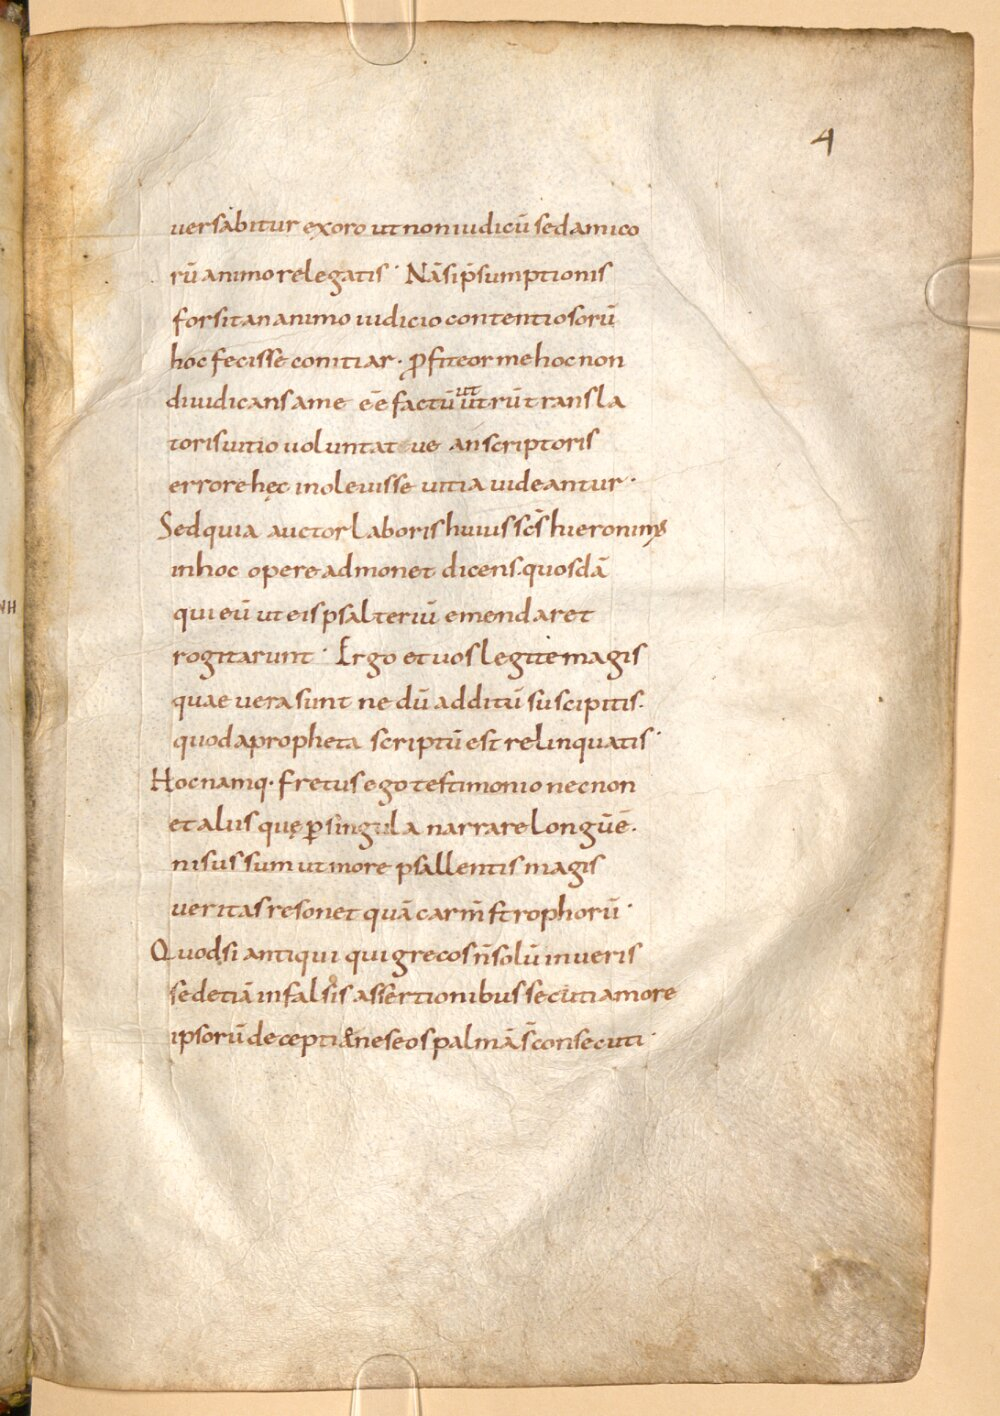 4
uersabitur exoro ut non iudicū sed amico
rū animo relegatis· Nā si p̄sumptionis
forsitan animo iudicio contentiosorū
hoc fecisse conitiar· ꝓfiteor me hoc non
diiudicans a me ēē factū utrū transla
toris uitio uoluntat ue an scriptoris
errore hęc inoleuisse uitia uideantur·
Sed quia auctor laboris huius sc̄s hieronimus
in hoc opere admonet dicens· quosdā
qui eū ut eis psalteriū emendaret
rogitarunt· Ergo et uos legite magis
quae uera sunt ne dū additū suscipitis·
quod a propheta scriptū est relinquatis·
Hoc namq· fretus ego testimonio necnon
et aliis quę ꝑ singula narrare longū ē·
nisus sum ut more psallentis magis
ueritas resonet quā carm̄ strophorū·
Quodsi antiqui qui grecos n̄ solū in ueris
sed etiā in falsis assertionibus secuti amore
ipsorū decepti & ne se os palmā s̄ consecuti·
NH